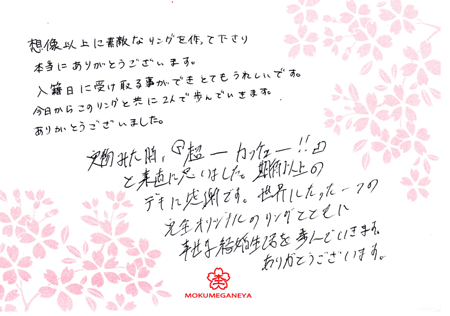 想像以上に素敵なリングを作って下さり
本当にありがとうございます。
入籍日に受け取る事ができとてもうれしいです。
今日からこのリングと共に2人で歩んでいきます。
ありがとうございました。
実物みた時、『超ーカッチョー!!』
と素直に思いました。期待以上の
デキに感謝です。世界にたった一つの
完全オリジナルのリングとともに
幸せな結婚生活を歩んでいきます。
ありがとうございます。
MOKUMEGANEYA